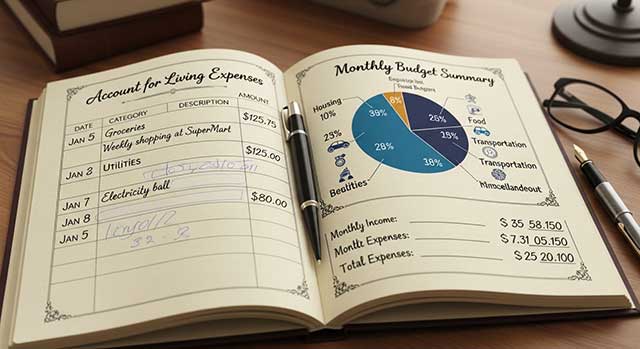 Account for Living Expenses
DATE CATEGORY DESCRIPTION AMOUNT
JAN 5 Groceries $125.75
Weekly shopping at SuperMart
JAN 2 Utilities $125.00
JAN 7 Electricity ball $80.00
JAN 8
JAN 5
Monthly Budget Summary
Housing
10%
23%
Beatlities
39%
6%
25%
15%
18%
28%
Food
Transportation
Transportation
Monthly Income: $ 35 58.150
Montlt Expenses: $7.31 05.150
Total Expenses: $ 25 20.100